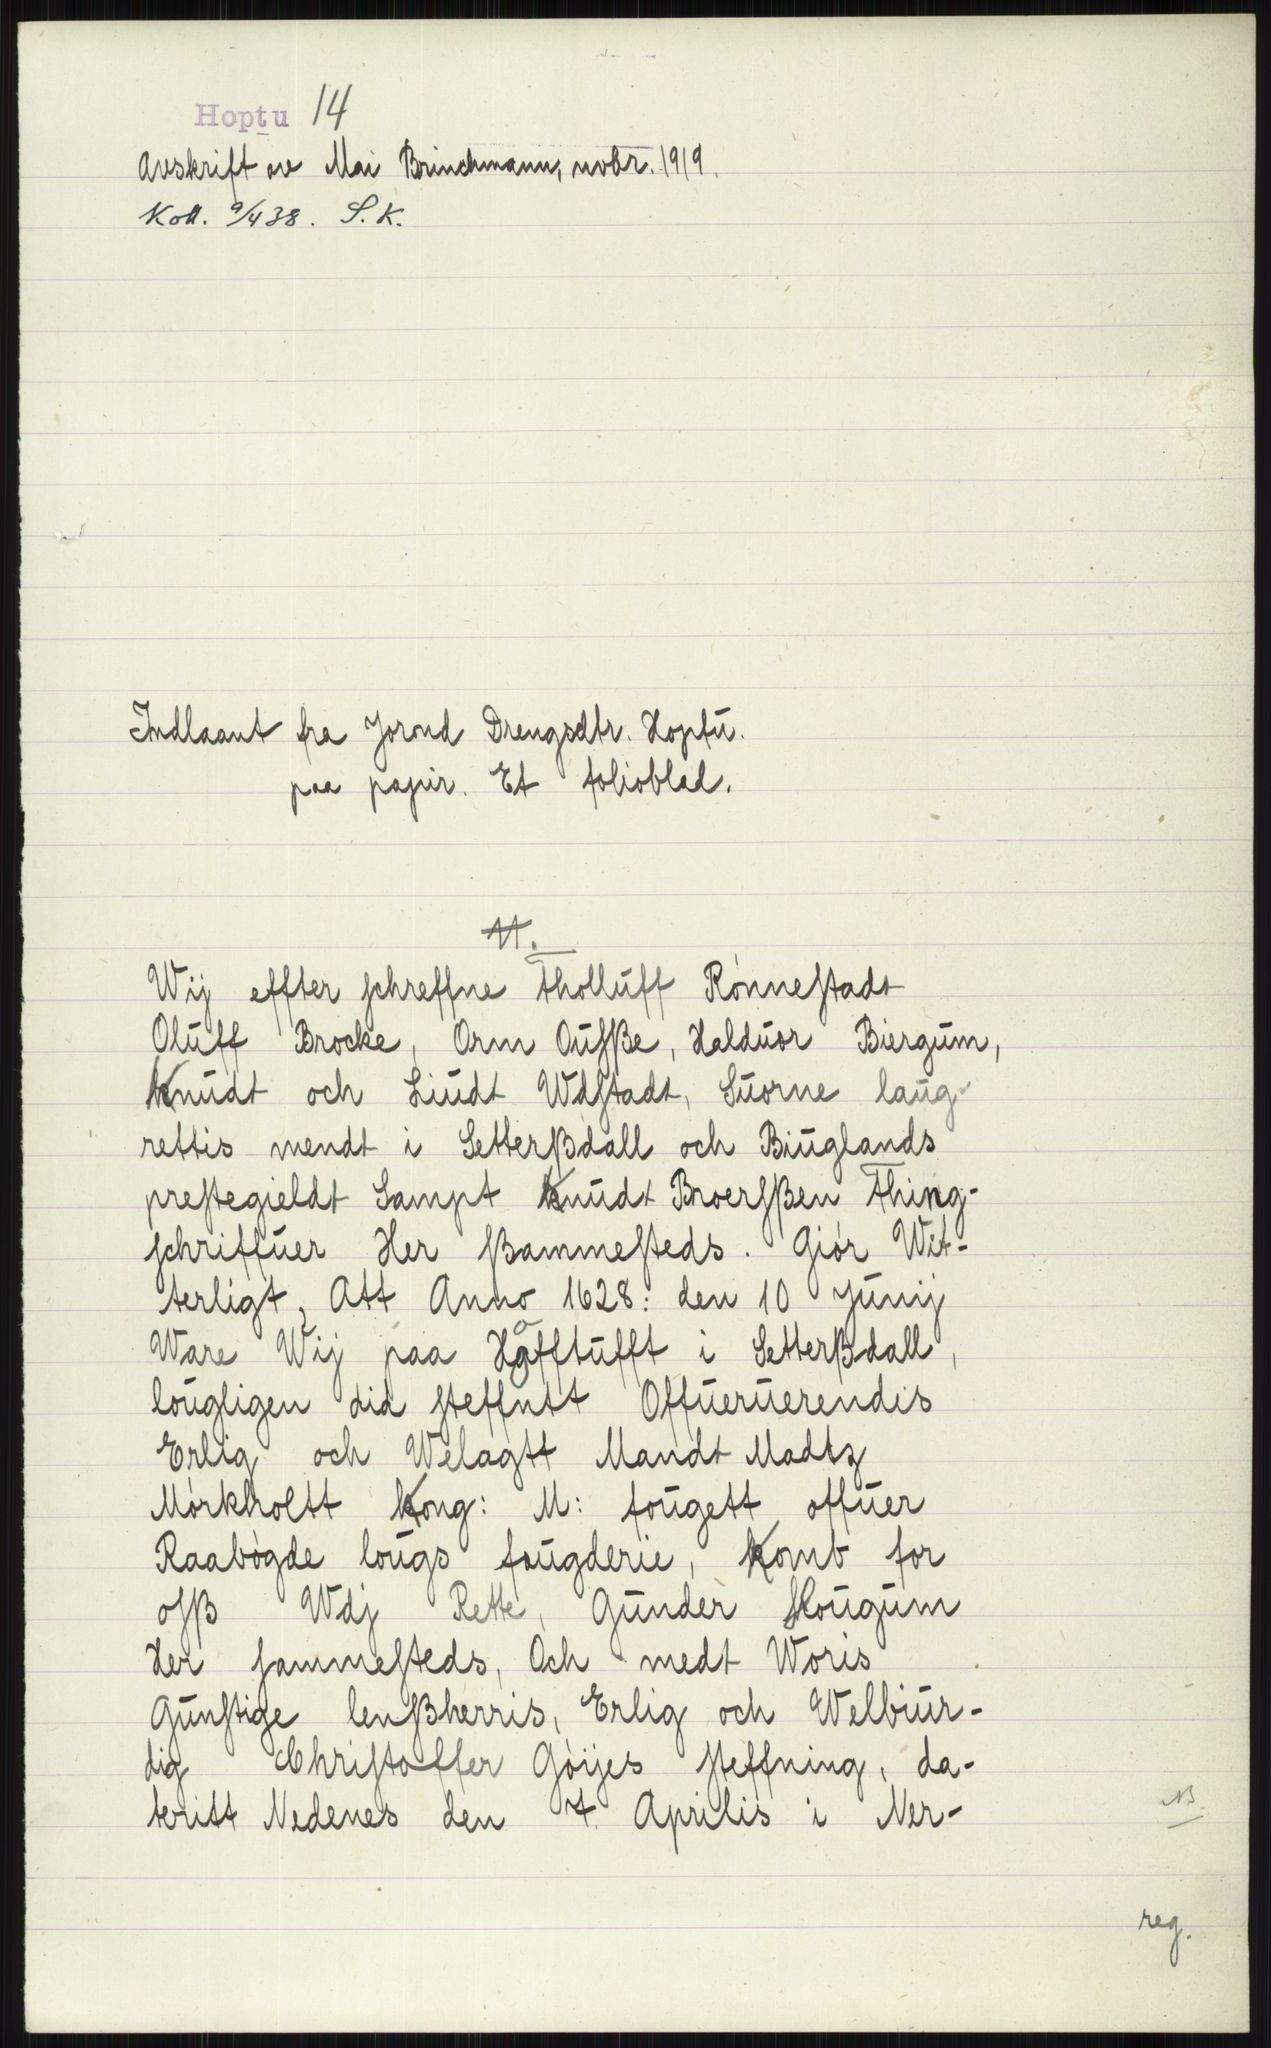 Hoptu 14
Avskrift av Mai Brinchmann, novbr. 1919.
Koll. 9/4 38. S. K.
Indlaant fra Jorond Drengsdtr. Hoptu.
paa papir. Et folioblad.
11.
Wij effter schreffne Tholluff Rønnestadt
Oluff Brocke, Orm Ousße, Halduor Biergum,
knudt och Liudt Wdstadt, Suorne laug-
rettis mendt i Setterßdall och Biuglands
prestegieldt Sampt knudt Broersßen Thing-
schriffuer Her ßammesteds. Giör Wit-
terligt, Att Anno 1628: den 10 Junij
Ware Wij paa Hafftufft i Setterßdall,
lougligen did steffntt Offueruerendis
Erlig och Welagtt Mandt Madtz
Mörkholtt kong: M: fougett offuer
Raabögde lougs fougderie, komb for
osß Wdj Rette, Gunder Hougum
Her sammesteds, Och medt Woris
Gunstige lenßherris, Erlig och Welbiur-
dig Christoffer Göijes steffning, da-
teritt Nedenes den 7. Aprilis i Ner-
NB.
reg.